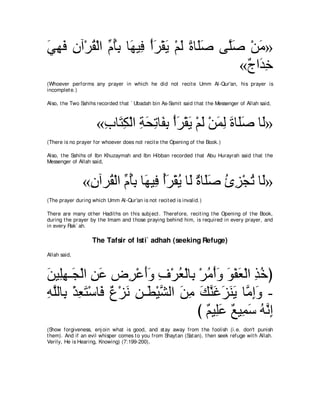 «مَنْ صَلَّى صَلَاةً لَمْ يَقْرَأْ فِيهَا بِأُمِّ الْقُرْآن فَهِيَ
خِدَاجٌ»
(Whoever performs any prayer in which he did not recite Umm Al-Qur'an, his prayer is
incomplete.)
Also, the Two Sahihs recorded that `Ubadah bin As-Samit said that the Messenger of Allah said,
«لَا صَلَاةَ لِمَنْ لَمْ يَقْرَأْ بِفَاتِحَةِ الْكِتَابِ»
(There is no prayer for whoever does not recite the Opening of the Book.)
Also, the Sahihs of Ibn Khuzaymah and Ibn Hibban recorded that Abu Hurayrah said that the
Messenger of Allah said,
«لَا تُجْزِئُ صَلَاةٌ لَا يُقْرَأُ فِيهَا بِأُمِّ الْقُرْآن»
(The prayer during which Umm Al-Qur'an is not recited is invalid.)
There are many other Hadiths on this subject. Therefore, reciting the Opening of the Book,
during the prayer by the Imam and those praying behind him, is required in every prayer, and
in every Rak`ah.
The Tafsir of Isti`adhah (seeking Refuge)
Allah said,
(خُذِ الْعَفْوَ وَأْمُرْ بِالْعُرْفِ وَأَعْرِض عَنِ الْجَـهِلِينَ
- وَإِمَّا يَنَزَغَنَّكَ مِنَ الشَّيْطَـنِ نَزْغٌ فَاسْتَعِذْ بِاللَّهِ
إِنَّهُ سَمِيعٌ عَلِيمٌ )
(Show forgiveness, enjoin what is good, and stay away from the foolish (i.e. don't punish
them). And if an evil whisper comes to you from Shaytan (Satan), then seek refuge with Allah.
Verily, He is Hearing, Knowing) (7:199-200),